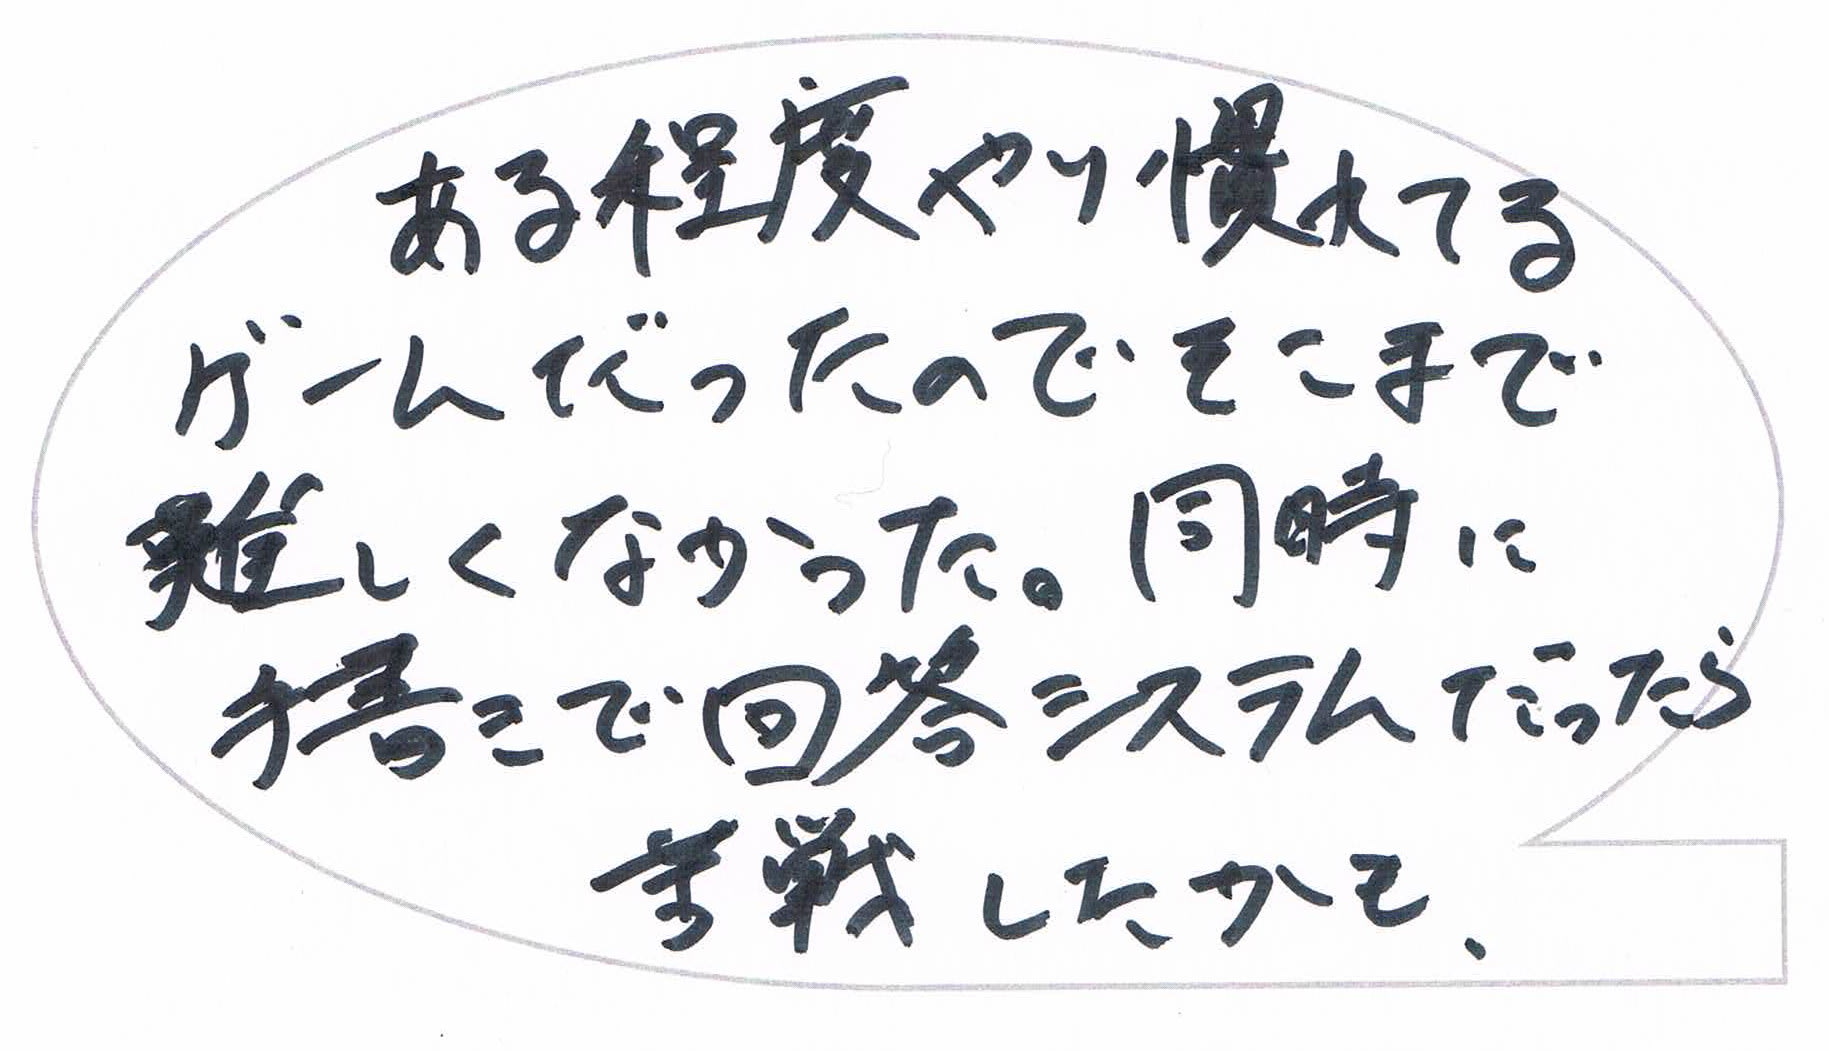 ある程度やり慣れてる
ゲームだったのでそこまで
難しくなかった。同時に
書こで回答システムだったら
苦戦したかも、